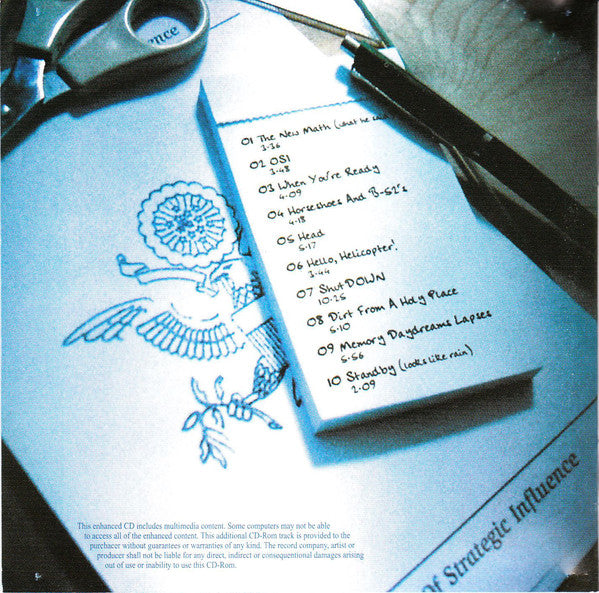 ence
01 The New Math (what he said)
3.36
02 OSI
3.48
03 When You're Ready
4.09
04 Horseshoes And B-52's
4.18
05 Head
5.17
06 Hello, Helicopter!
3.44
07 ShutDOWN
10.25
08 Dirt From A Holy Place
5.10
09 Memory Daydreams Lapses
5.56
10 Standby (looks like rain)
2.09
Of Strategic Influence
This enhanced CD includes multimedia content. Some computers may not be able
to access all of the enhanced content. This additional CD-Rom track is provided to the
purchacer without guarantees or warranties of any kind. The record company, artist or
producer shall not be liable for any direct, indirect or consequentional damages arising
out of use or inability to use this CD-Rom.